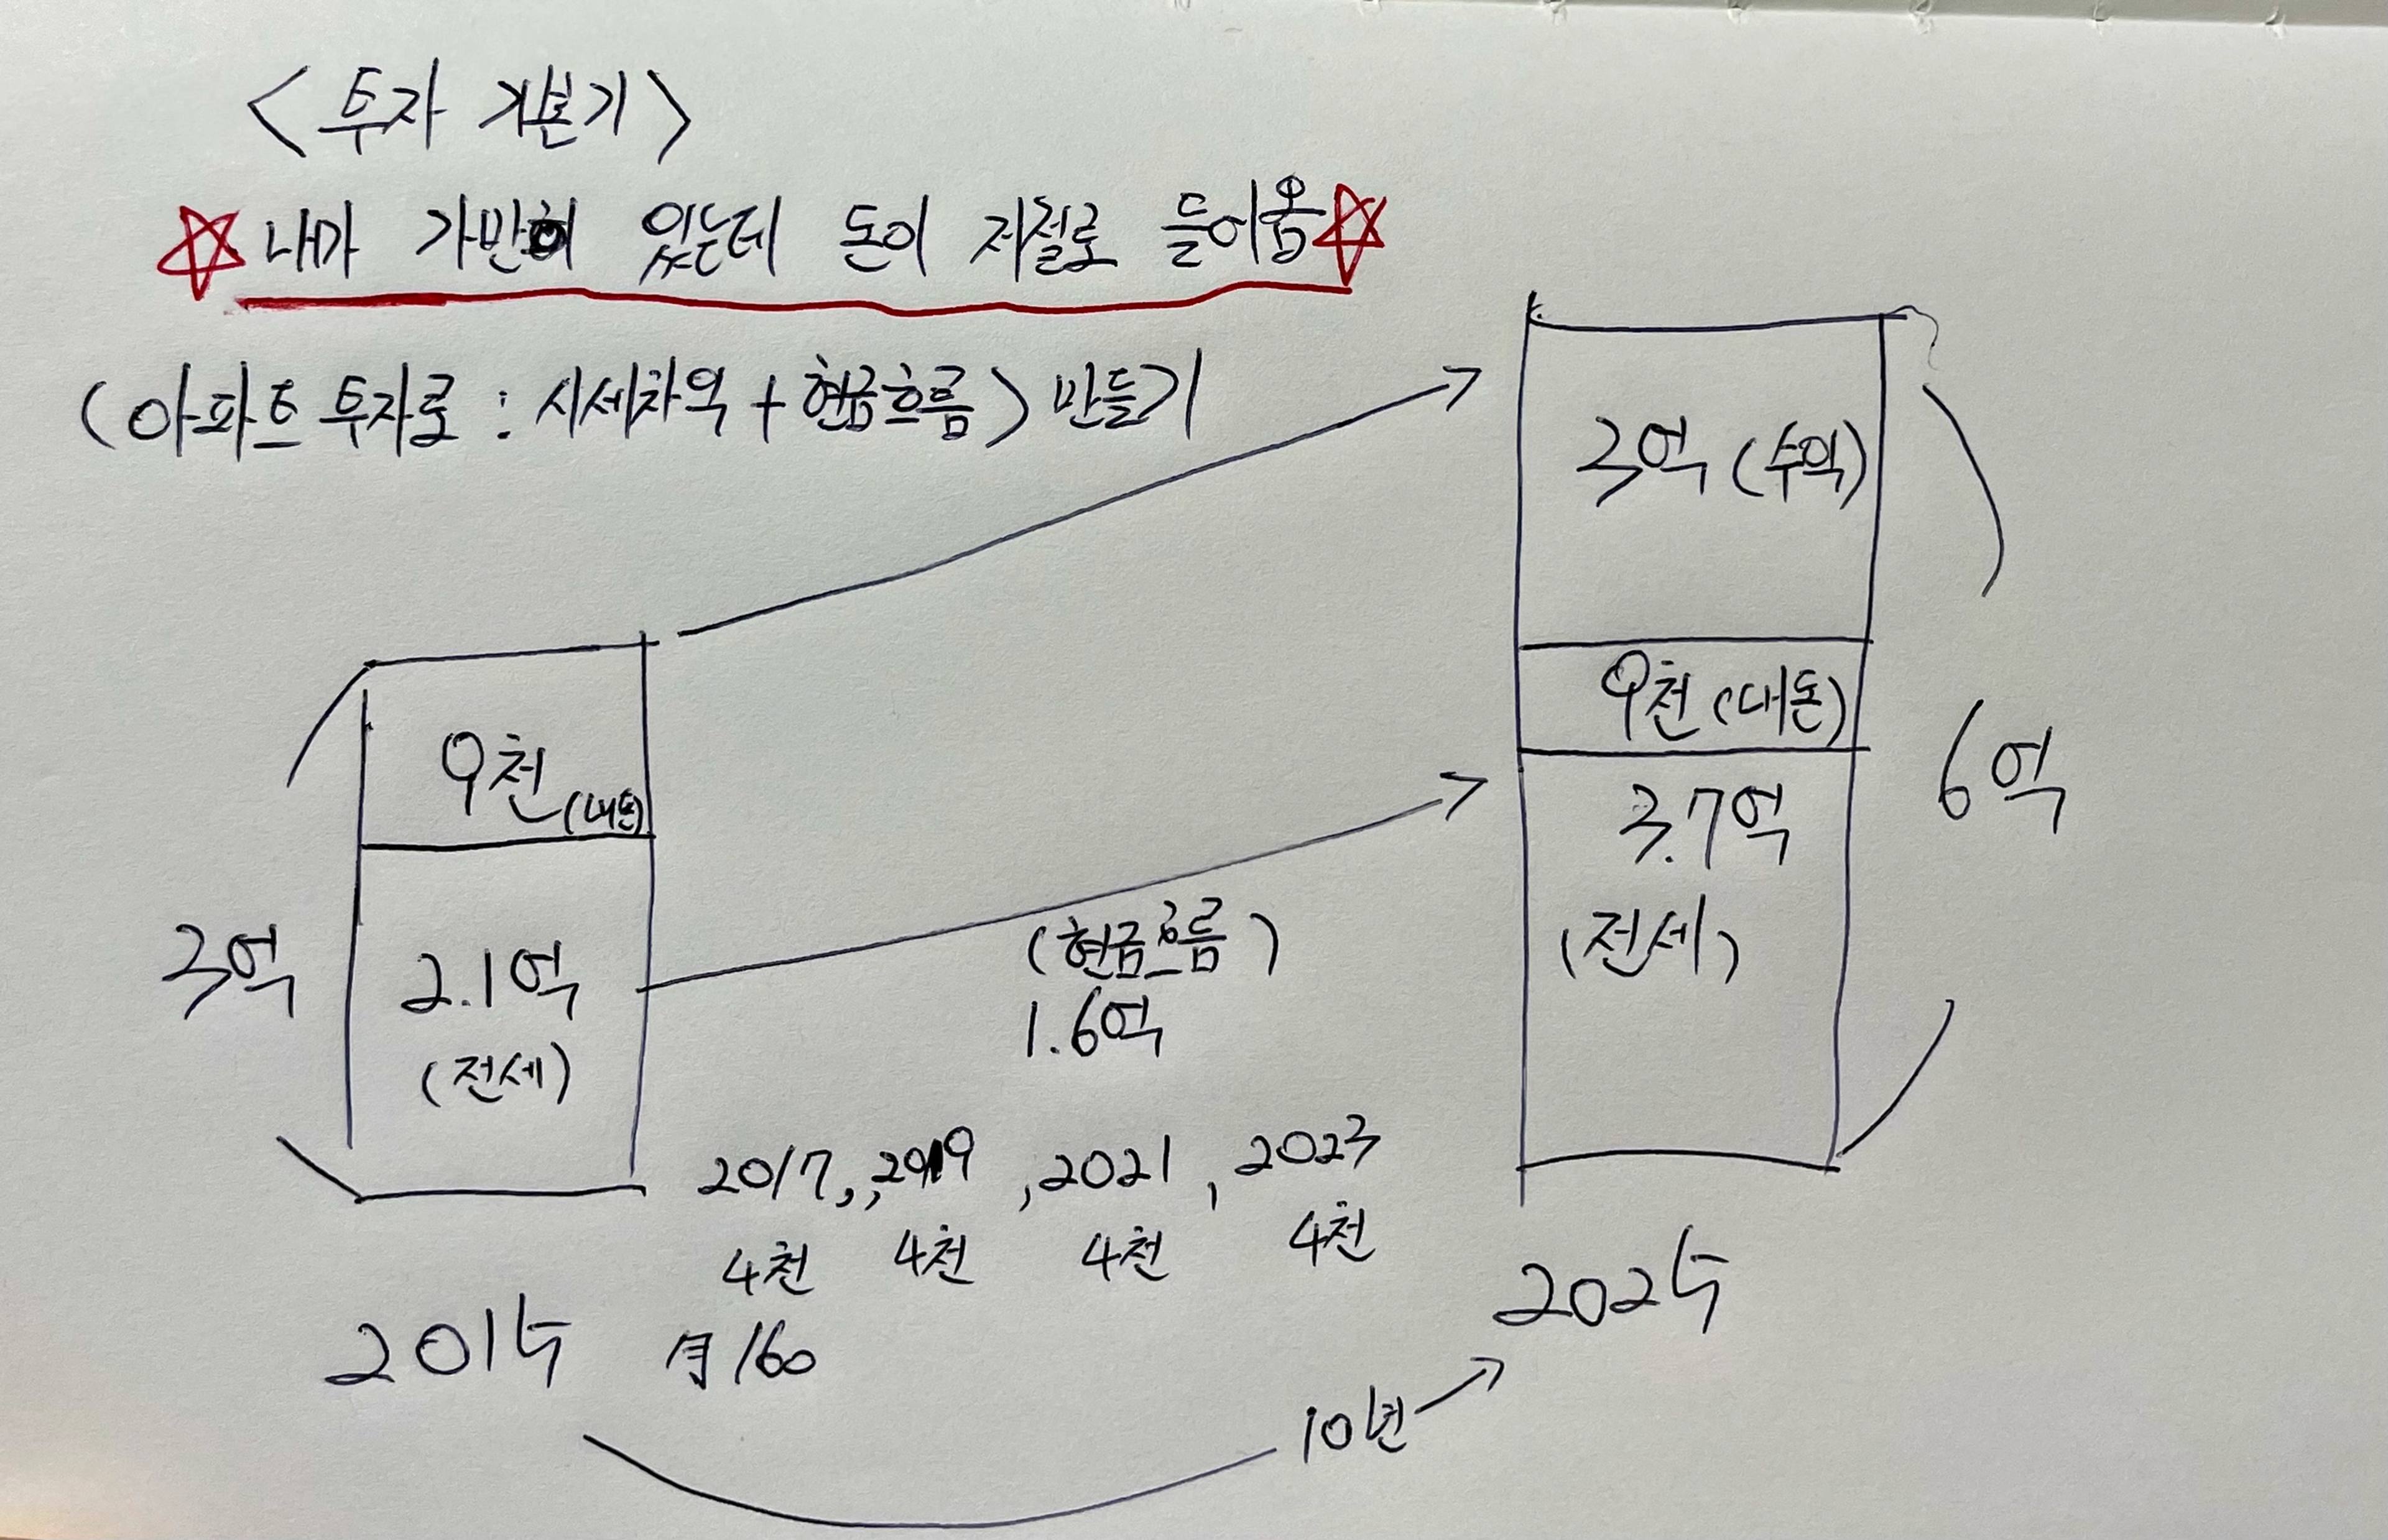 <투자 기본기>
☆내가 가만히 있는데 돈이 저절로 들어옴☆
(아파트 투자로 : 시세차익 + 현금흐름) 만들기
3억 (수익)
9천 (내돈)
3.7억
(전세)
6억
9천 (내돈)
3억
2.1억
(전세)
(현금흐름)
1.6억
2017, ,2019 ,2021 , 2023
4천 4천 4천 4천
月160
2015
2025
10년